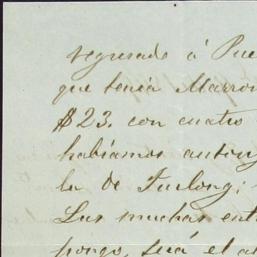 regresado á Pue
que tenia Marron
$23. con cuatro
habiamos anton
la de Furlong;
Las muchas ent
pongo, será el a